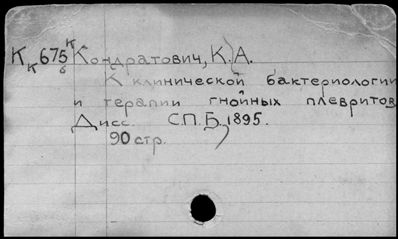 К К 675 К Кондратович, К. А.
6
К клинической бактериологии
и терапии гнойных плевритов
Дисс. СП.Б, 1895.
90 стр.